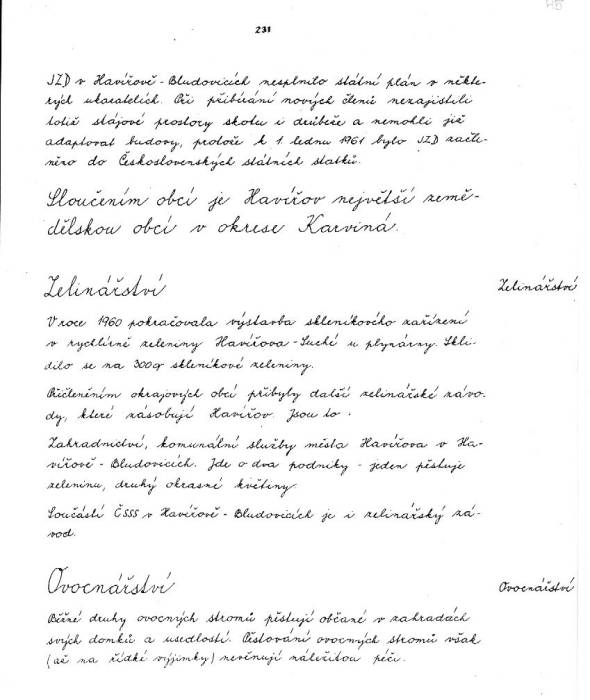 231
JZD v Havířově - Bludovicích nesplnilo státní plán v někte-
rých ukazatelích. Při přibírání nových členů nezajistili
totiž stájové prostory skotu i drůbeže a nemohli již
adaptovat budovy, protože k 1. lednu 1961 bylo JZD začle-
něno do Československých státních statků.
Sloučením obcí je Havířov největší země-
dělskou obcí v okrese Karviná.
Zelinářství
Zelinářství
V roce 1960 pokračovala výstavba skleníkového zařízení
v rychlírně zeleniny Havířova - Suché u plynárny. Skli-
dilo se na 300q skleníkové zeleniny.
Přičleněním okrajových obcí přibyly další zelinářské závo-
dy, které zásobují Havířov. Jsou to:
Zahradnictví, komunální služby města Havířova v Ha-
vířově - Bludovicích. Jde o dva podniky - jeden pěstuje
zeleninu, druhý okrasné květiny.
Součástí ČSSS v Havířově - Bludovicích je i zelinářský zá-
vod.
Ovocnářství
Ovocnářství
Běžné druhy ovocných stromů pěstují občané v zahradách
svých domků a usedlostí. Pěstování ovocných stromů však
(až na řídké výjimky) nevěnují náležitou péči.